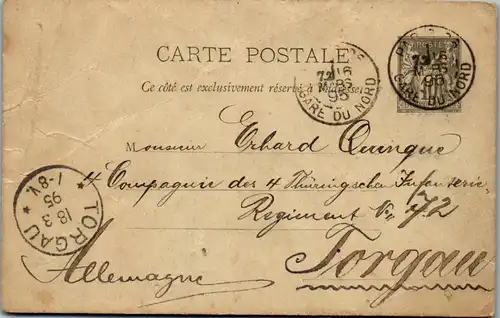 CARTE POSTALE
Ce côté est exclusivement réservé à l'adresse.
PARIS
72 16
MARS
95
GARE DU NORD
72 16
MARS
95
GARE DU NORD
Monsieur Erhard Quinque
4 Compagnie des 4 Thüringschen Infanterie-
Regiment No 72
Torgau
Allemagne
TORGAU
18 3
95
7-8V.